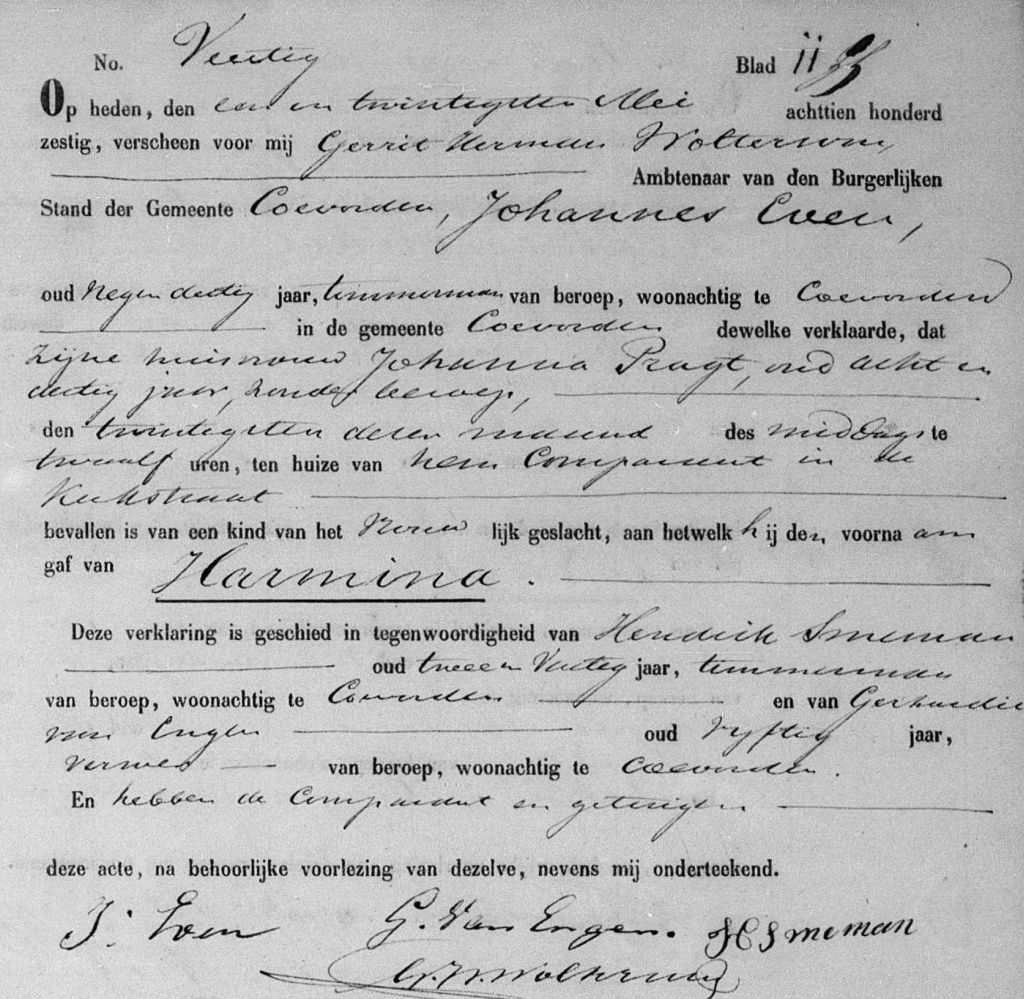 No. Veertig Blad 11
Op heden, den een en twintigsten Mei achttien honderd
zestig, verscheen voor mij Gerrit Herman Woltersom,
Ambtenaar van den Burgerlijken
Stand der Gemeente Coevorden, Johannes Even,
oud negen dertig jaar, timmerman van beroep, woonachtig te Coevorden
in de gemeente Coevorden dewelke verklaarde, dat
zijne huisvrouw Johanna Pragt, oud acht en
dertig jaar, zonder beroep,
den twintigsten dezer maand des middags te
twaalf uren, ten huize van hem Comparant in de
Kerkstraat
bevallen is van een kind van het Vrouwlijk geslacht, aan hetwelk hij den voornaam
gaf van Harmina.
Deze verklaring is geschied in tegenwoordigheid van Hendrik Smeman
oud twee en Veertig jaar, timmerman
van beroep, woonachtig te Coevorden en van Gerhardus
van Engen oud vyftig jaar,
Verwer van beroep, woonachtig te Coevorden.
En hebben de Comparant en getuigen
deze acte, na behoorlijke voorlezing van dezelve, nevens mij onderteekend.
J. Even G. Van Engen. H Smeman
G. H. Woltersom